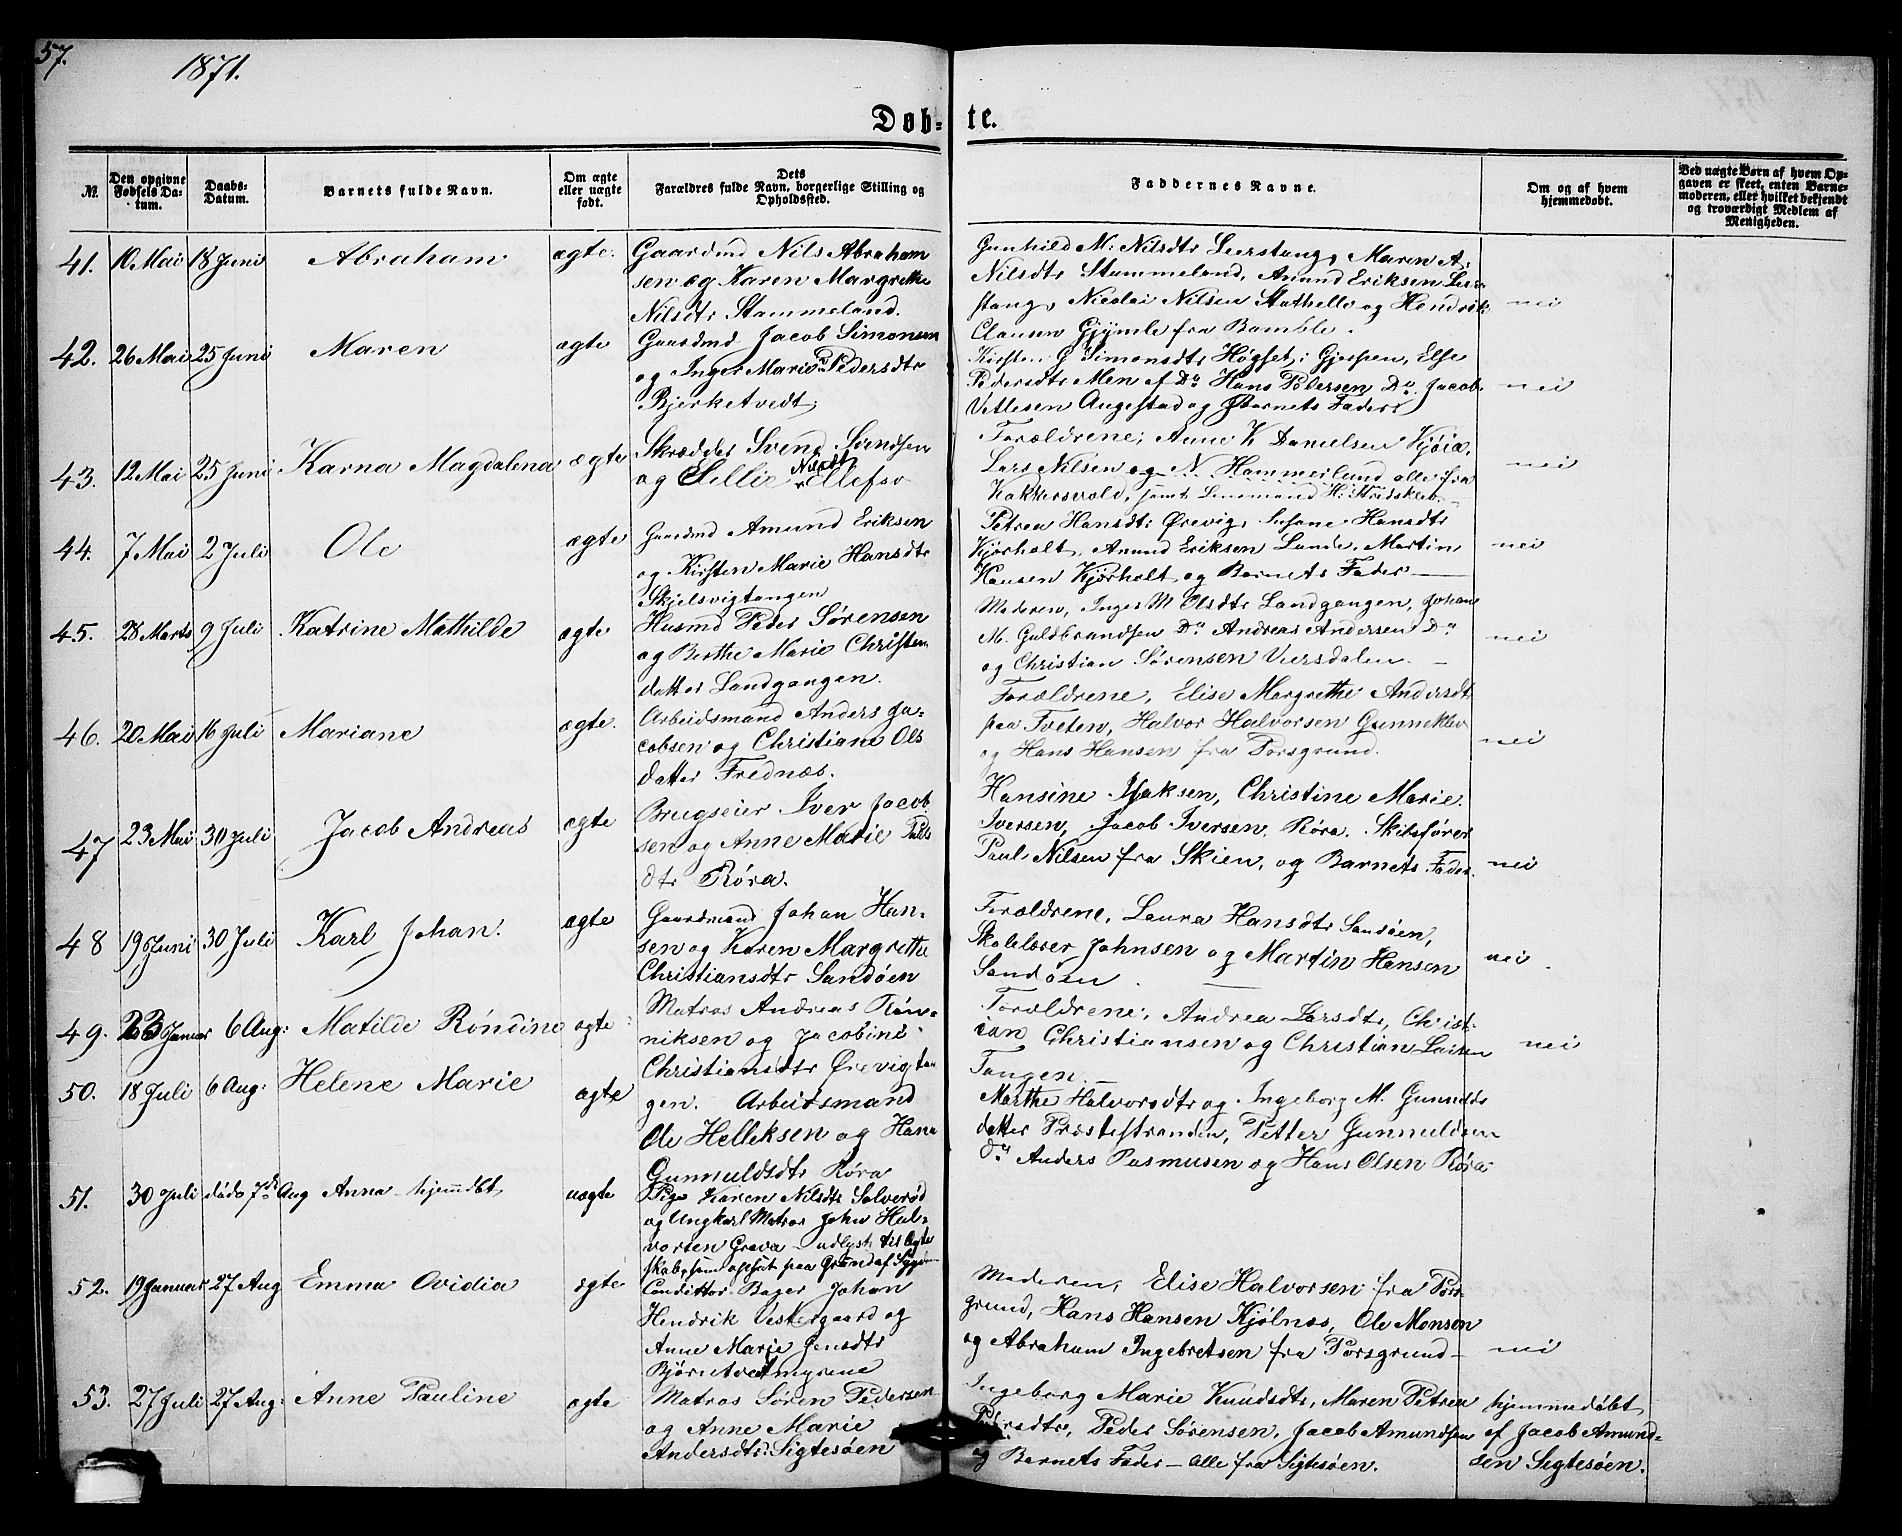 57.
1871.
Døb-
te.
№.
Den opgivne Fødsels Da-tum.
Daabs-Datum.
Barnets fulde Navn.
Om ægte eller uægte født.
Dets Forældres fulde Navn, borgerlige Stilling og Opholdssted.
Faddernes Navne.
Om og af hvem hjemmedøbt.
Ved uægte Børn af hvem Op-gaven er skeet, enten Barne-moderen, eller hvilket bekjendt og troværdigt Medlem af Menigheden.
41. 10 Mai 18 Juni Abraham ægte.
Gaardmd Nils Abraham
sen og Karen Margrethe
Nilsdtr Stammeland.
Gunhild M. Nilsdtr Leerstang, Maren A.
Nilsdtr Stammeland, Amund Eriksen Leer
stang, Nicolai Nilsen Stathelle og Hendrik
Clausen Gjymle fra Bamble.
nei
42. 26 Mai 25 Juni Maren ægte
Gaardmd Jacob Simonsen
og Inger Marie Pedersdtr
Bjerketvedt.
Kirsten G Simonsdtr Høgset i Gjerpen, Else
Pedersdtr Men af Do Hans Pedersen Do. Jacob
Vetlesen Augestad og Barnets Fader
nei
43. 12 Mai 25 Juni Karna Magdalena ægte
Skrædder Svend Svendsen
og Sillie Nilsdt Ellefsø
Forældrene, Anne K Danielsen Kjøia,
Lars Nilsen og N. Hammerlund alle fra
Kokkersvold, samt Lensmand H. Stridsklev
nei
44. 7 Mai 2 Juli Ole ægte
Gaardmd Amund Eriksen
og Kirsten Marie Hansdtr
Skjelsvigtangen
Petrea Hansdtr Ørevig, Susane Hansdtr
Kjørholt, Amund Eriksen Lunde, Martin
Hansen Kjørholt og Barnets Fader
nei
45. 28 Marts 9 Juli Katrine Mathilde ægte
Husmd Peder Sørensen
og Berthe Marie Christen
datter Landgangen.
Moderen, Inger M Olsdtr Landgangen, Johan
M. Guldbrandsen Do Andreas Andersen Do
og Christian Sørensen Versdalen.
nei
46. 20 Mai 16 Juli Mariane ægte.
Arbeidsmand Anders Ja-
cobsen og Christiane Ols
datter Frednæs.
Forældrene, Elise Margrethe Andersdt
paa Tveten, Halvor Halvorsen Gunneklev
og Hans Hansen fra Porsgrund.
nei
47 23 Mai 30 Juli Jacob Andreas ægte
Brugseier Iver Jacob
sen og Anne Marie Pauls
dtr Røra.
Hansine Isaksen, Christine Marie
Iversen, Jacob Iversen, Røra. Skibsfører
Paul Nilsen fra Skien, og Barnets Fader.
nei
48 19 Juni 30 Juli Karl Johan. ægte
Gaardmand Johan Han-
sen og Karen Margrethe
Christiansdtr Sandøen
Forældrene, Laura Hansdtr Sandøen,
Skolelærer Johnsen og Martin Hansen
Sandøen.
nei.
49. 23 Januar 6 Aug: Matilde Rondine ægte
Matros Andreas Røn-
niksen og Jacobine
Christiansdtr Ørevigtan
gen.
Forældrene, Andrea Larsdtr, Christ-
ian Christiansen og Christian Larsen
Tangen.
nei
50. 18 Juli 6 Aug: Helene Marie ægte
Arbeidsmand
Ole Helleksen og Hana
Gunnuldsdtr Røra
Marthe Halvorsdtr og Ingeborg M. Gunnulds
datter Præstestranden, Petter Gunnuldsen
Do Anders Rasmusen og Hans Olsen Røra
51. 30 Juli død 7de Aug Anna hjemmdbt uægte
Pige Karen Nilsdtr Salverød
og Ungkarl Matros John Hal-
vorsen Grava - udlyst til Ægte
skab, som opsat paa Grund af Sygdom
52. 19 Januar 27 Aug Emma Ovidia ægte
Condittor-Bager Johan
Hendrik Vestergaard og
Anne Marie Jensdtr
Bjørntvedtmyrene
Moderen, Elise Halvorsen fra Pors
grund, Hans Hansen Kjølnæs, Ole Monsen
og Abraham Ingebretsen fra Porsgrund
nei
53. 27 Juli 27 Aug: Anne Pauline ægte
Matros Søren Pedersen
og Anne Marie
Andersdtr. Sigtesøen
Ingeborg Marie Knudsdtr, Maren Petrea
Pedersdtr, Peder Sørensen, Jacob Amundsen
og Barnets Fader - alle fra Sigtesøen.
hjemmedøbt
af Jacob Amund-
sen Sigtesøen.